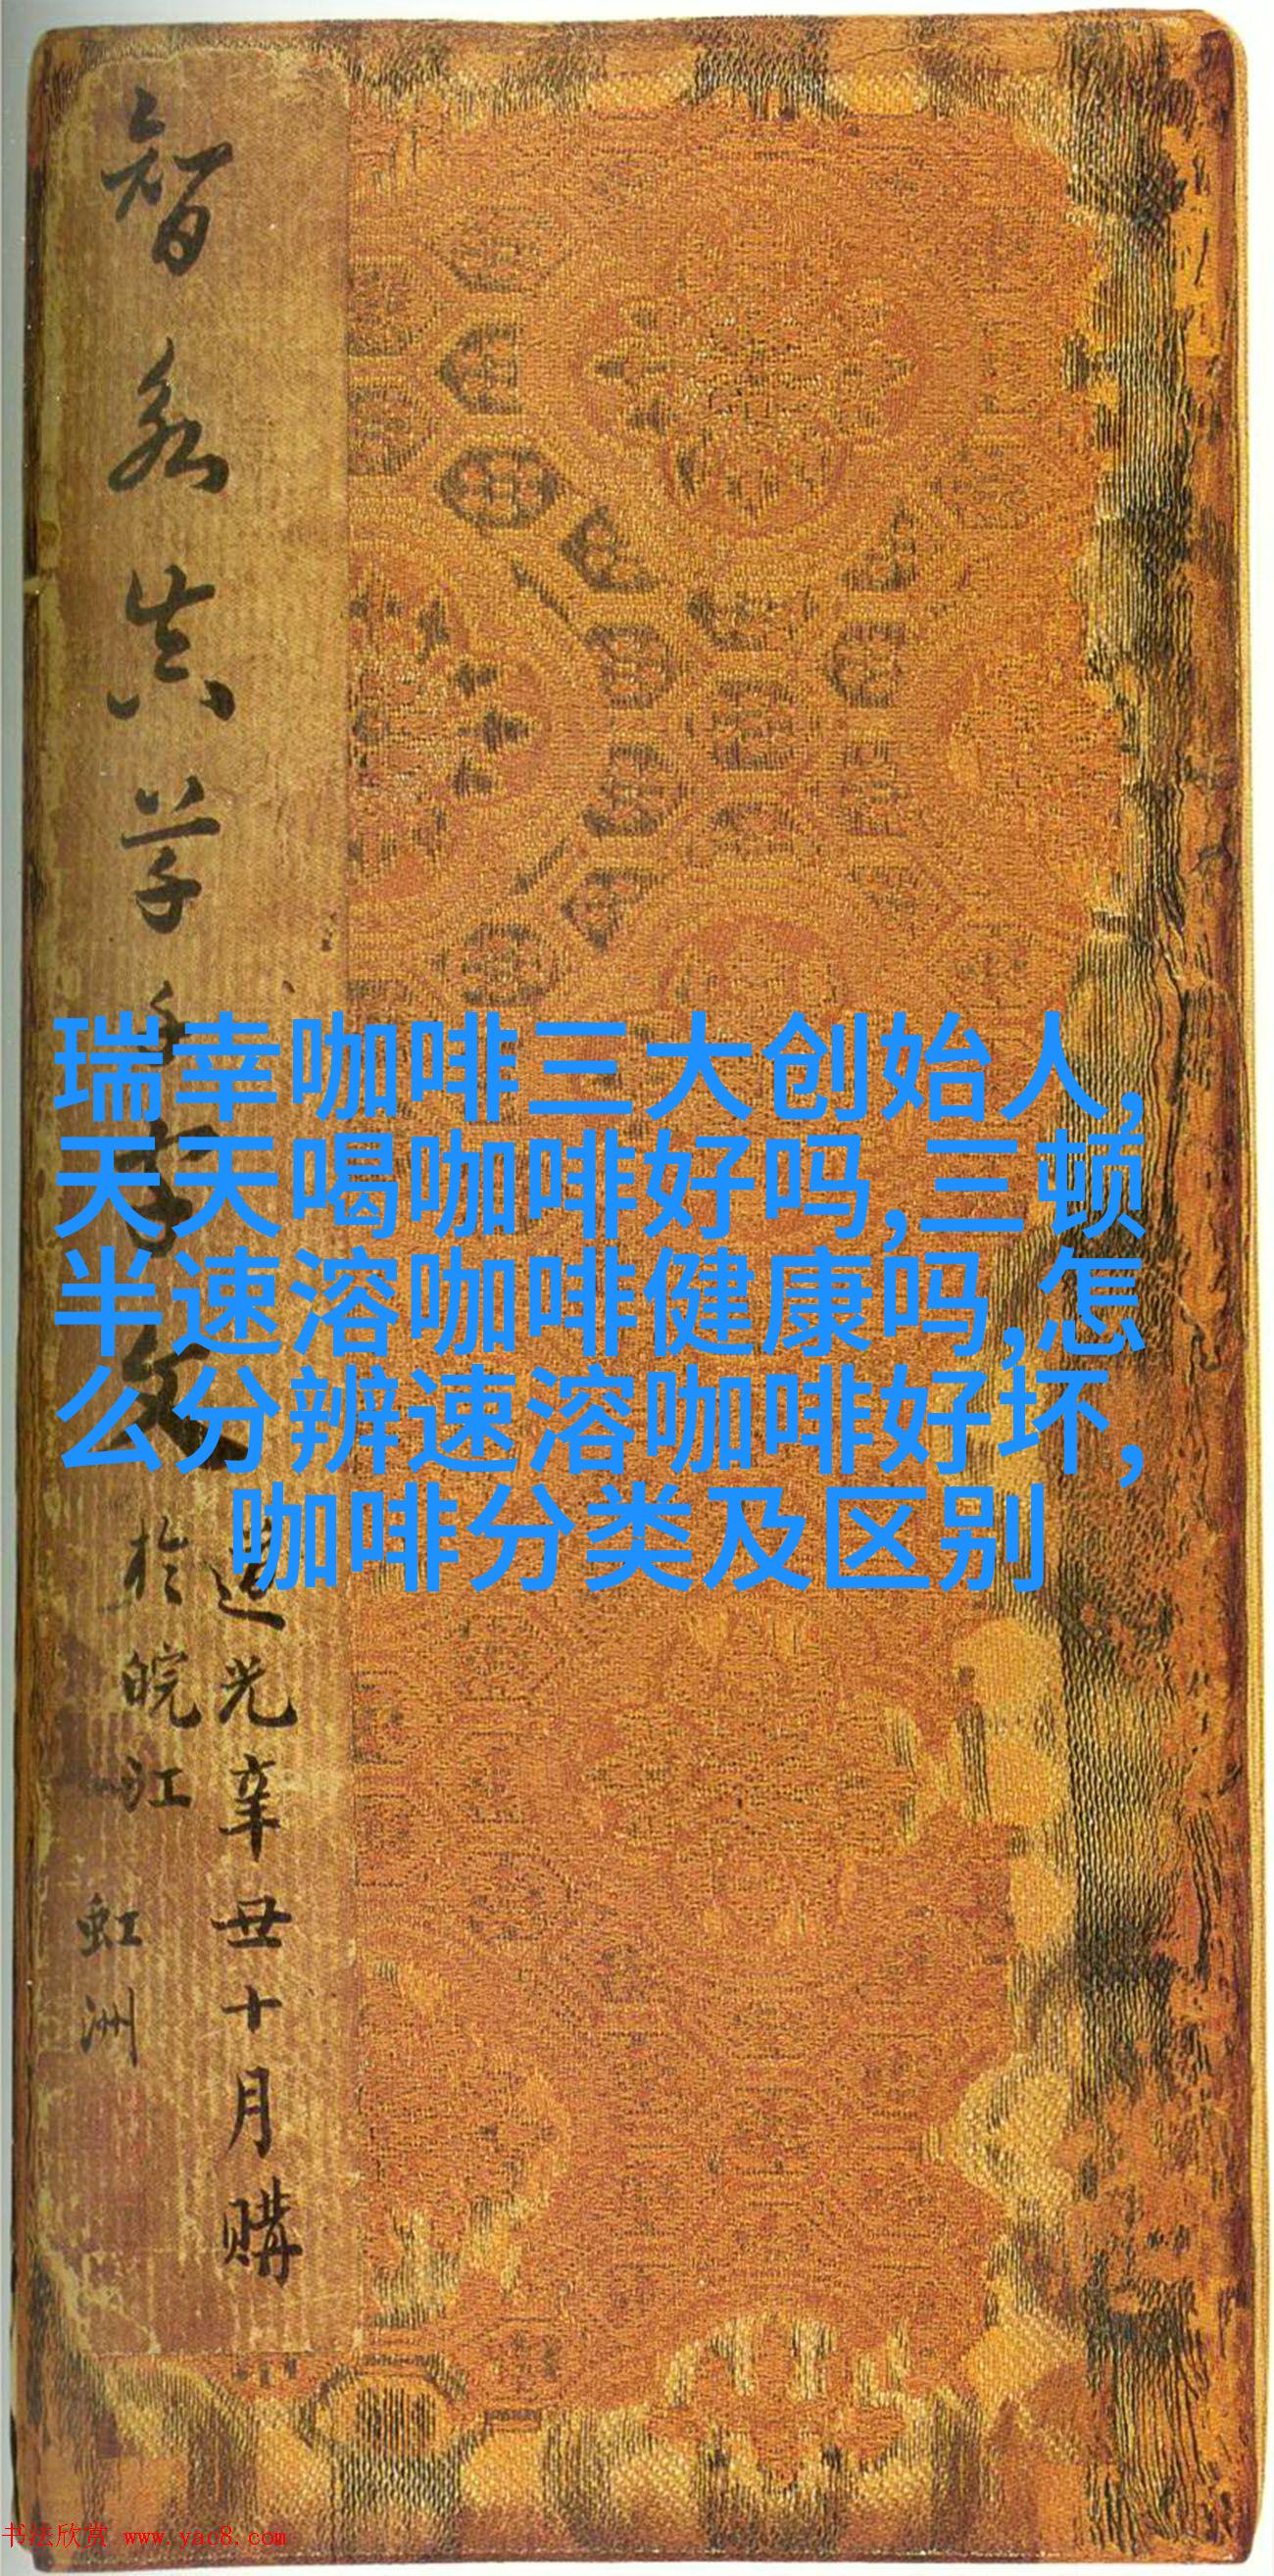 智永真草千字文
道光辛丑十月購
於皖江
虹洲
瑞幸咖啡三大创始人,
天天喝咖啡好吗,三顿
半速溶咖啡健康吗,怎
么分辨速溶咖啡好坏,
咖啡分类及区别
书法欣赏 www.yac8.com